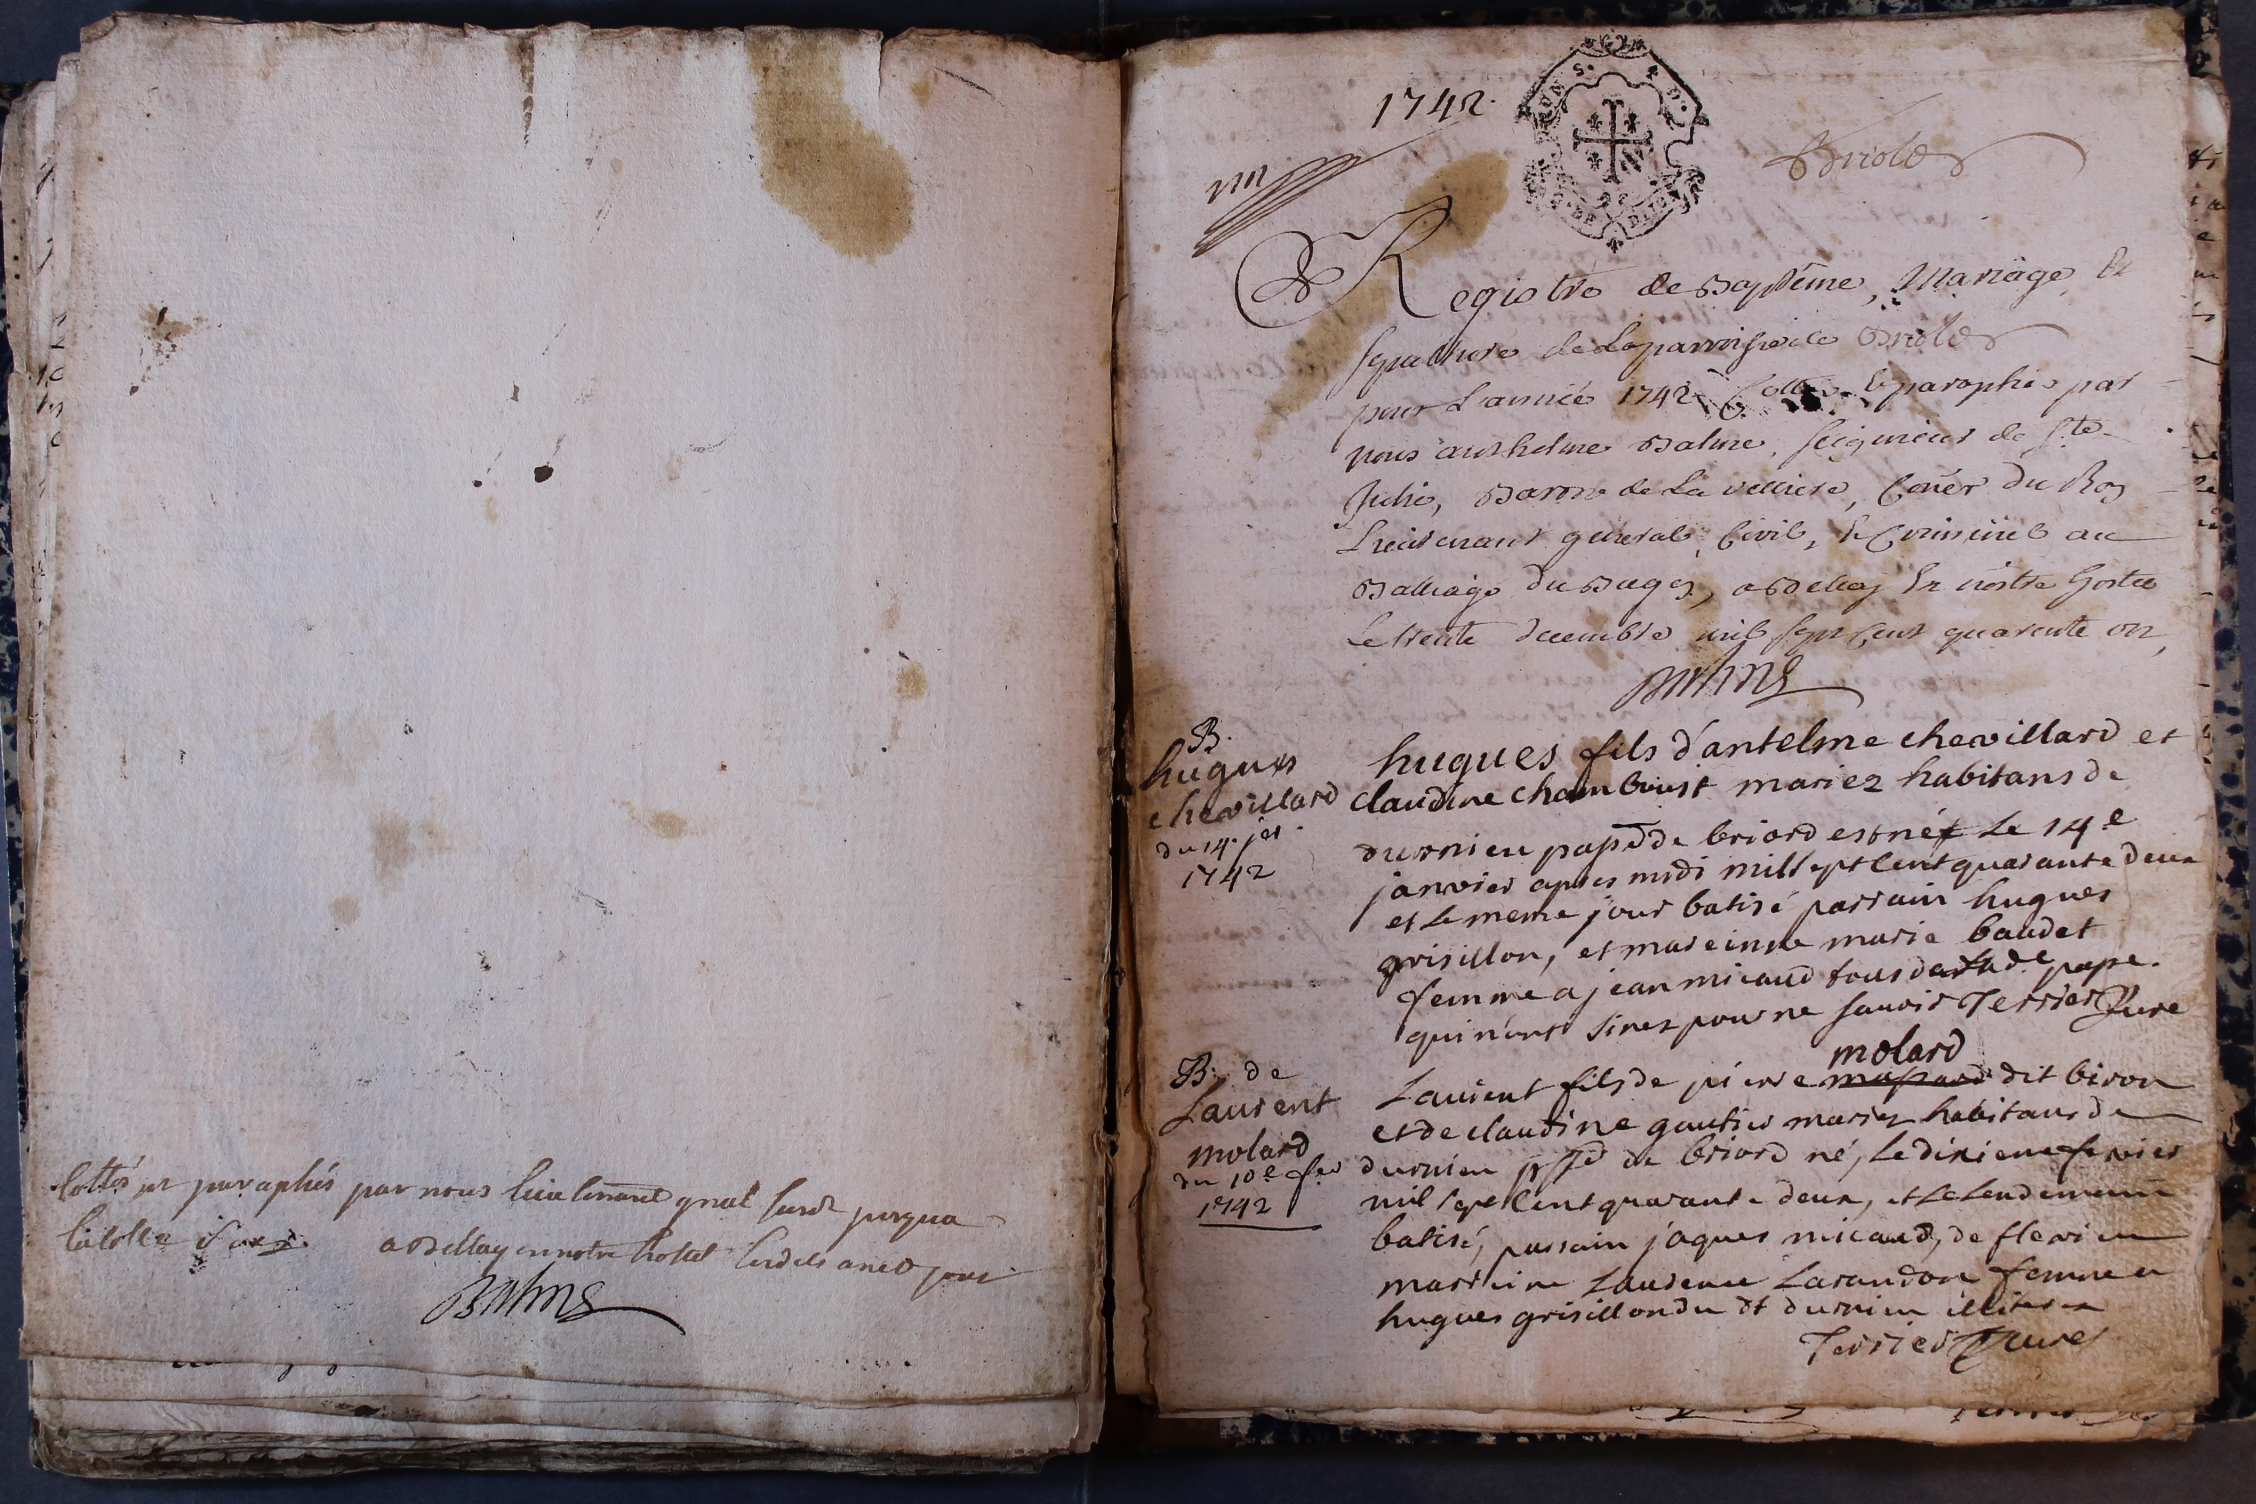 Cottés et paraphés par nous lieutenant gnal susdt jusqua
la cotte
a Bellay en notre hostel lesdits an et jour
Balme
1742.
DE DIJON
Briold
Registre de Baptême, Mariage, Et
sepulture de La parroisse de Briold
pour L'année 1742 Cottés & paraphés par
nous anthelme Balme, seigneur de Ste
Julie, Baron de La velliere, Conēr Du Roy
Lieutenant general, Civil, & Criminel au
Balliage du Bugey, a Belley En nostre hostel
Le trente decembre mil sept Cent quarente un,
Balme
B.
hugues
chevillard
du 14. jer
1742
hugues fils d'antelme chevillard et
claudine chambouist mariez habitans de
durnieu papd de briord est né Le 14e
janvier apres midi mil sept cent quarante deux
et Le meme jour batisé parrain hugues
grisillon, et mareinne marie baudet
femme a jean micaud tous de pape.
qui n'ont sinez pour ne sauoir Terrier Cure
B. de
Laurent
molard
du 10e fer
1742
molard
Laurent fils de pierre dit biron
et de claudine gautier mariez habitans de
durnieu de briord né, Le dixieme fevrier
mil sept cent quarante deux, et Le Lendemain
batisé, parrain jaques micaud, de flevieu
marreine Laurence Larandon femme a
hugues grisillon du dt durnieu
Terrier Cure